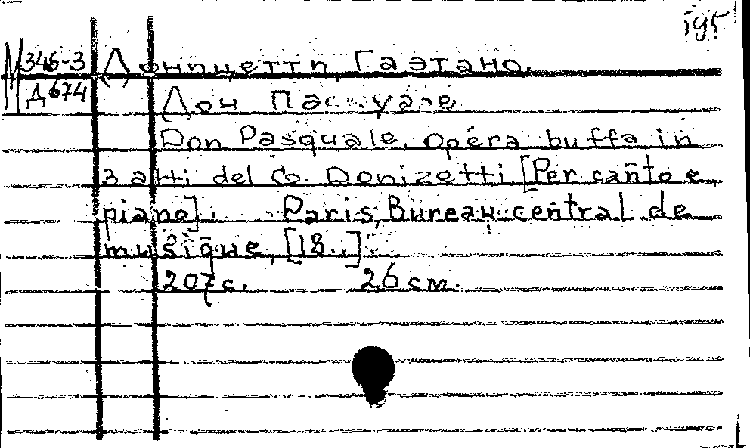 595
М 346-3 Доницетти, Гаэтано.
Д 674
Дон Паскуале
Don Pasquale. Opera buffa in
3 atti del Co. Donizetti [Per canto e
piano]. Paris, Bureau central de
musique, [18..].
207 с. 26 см.